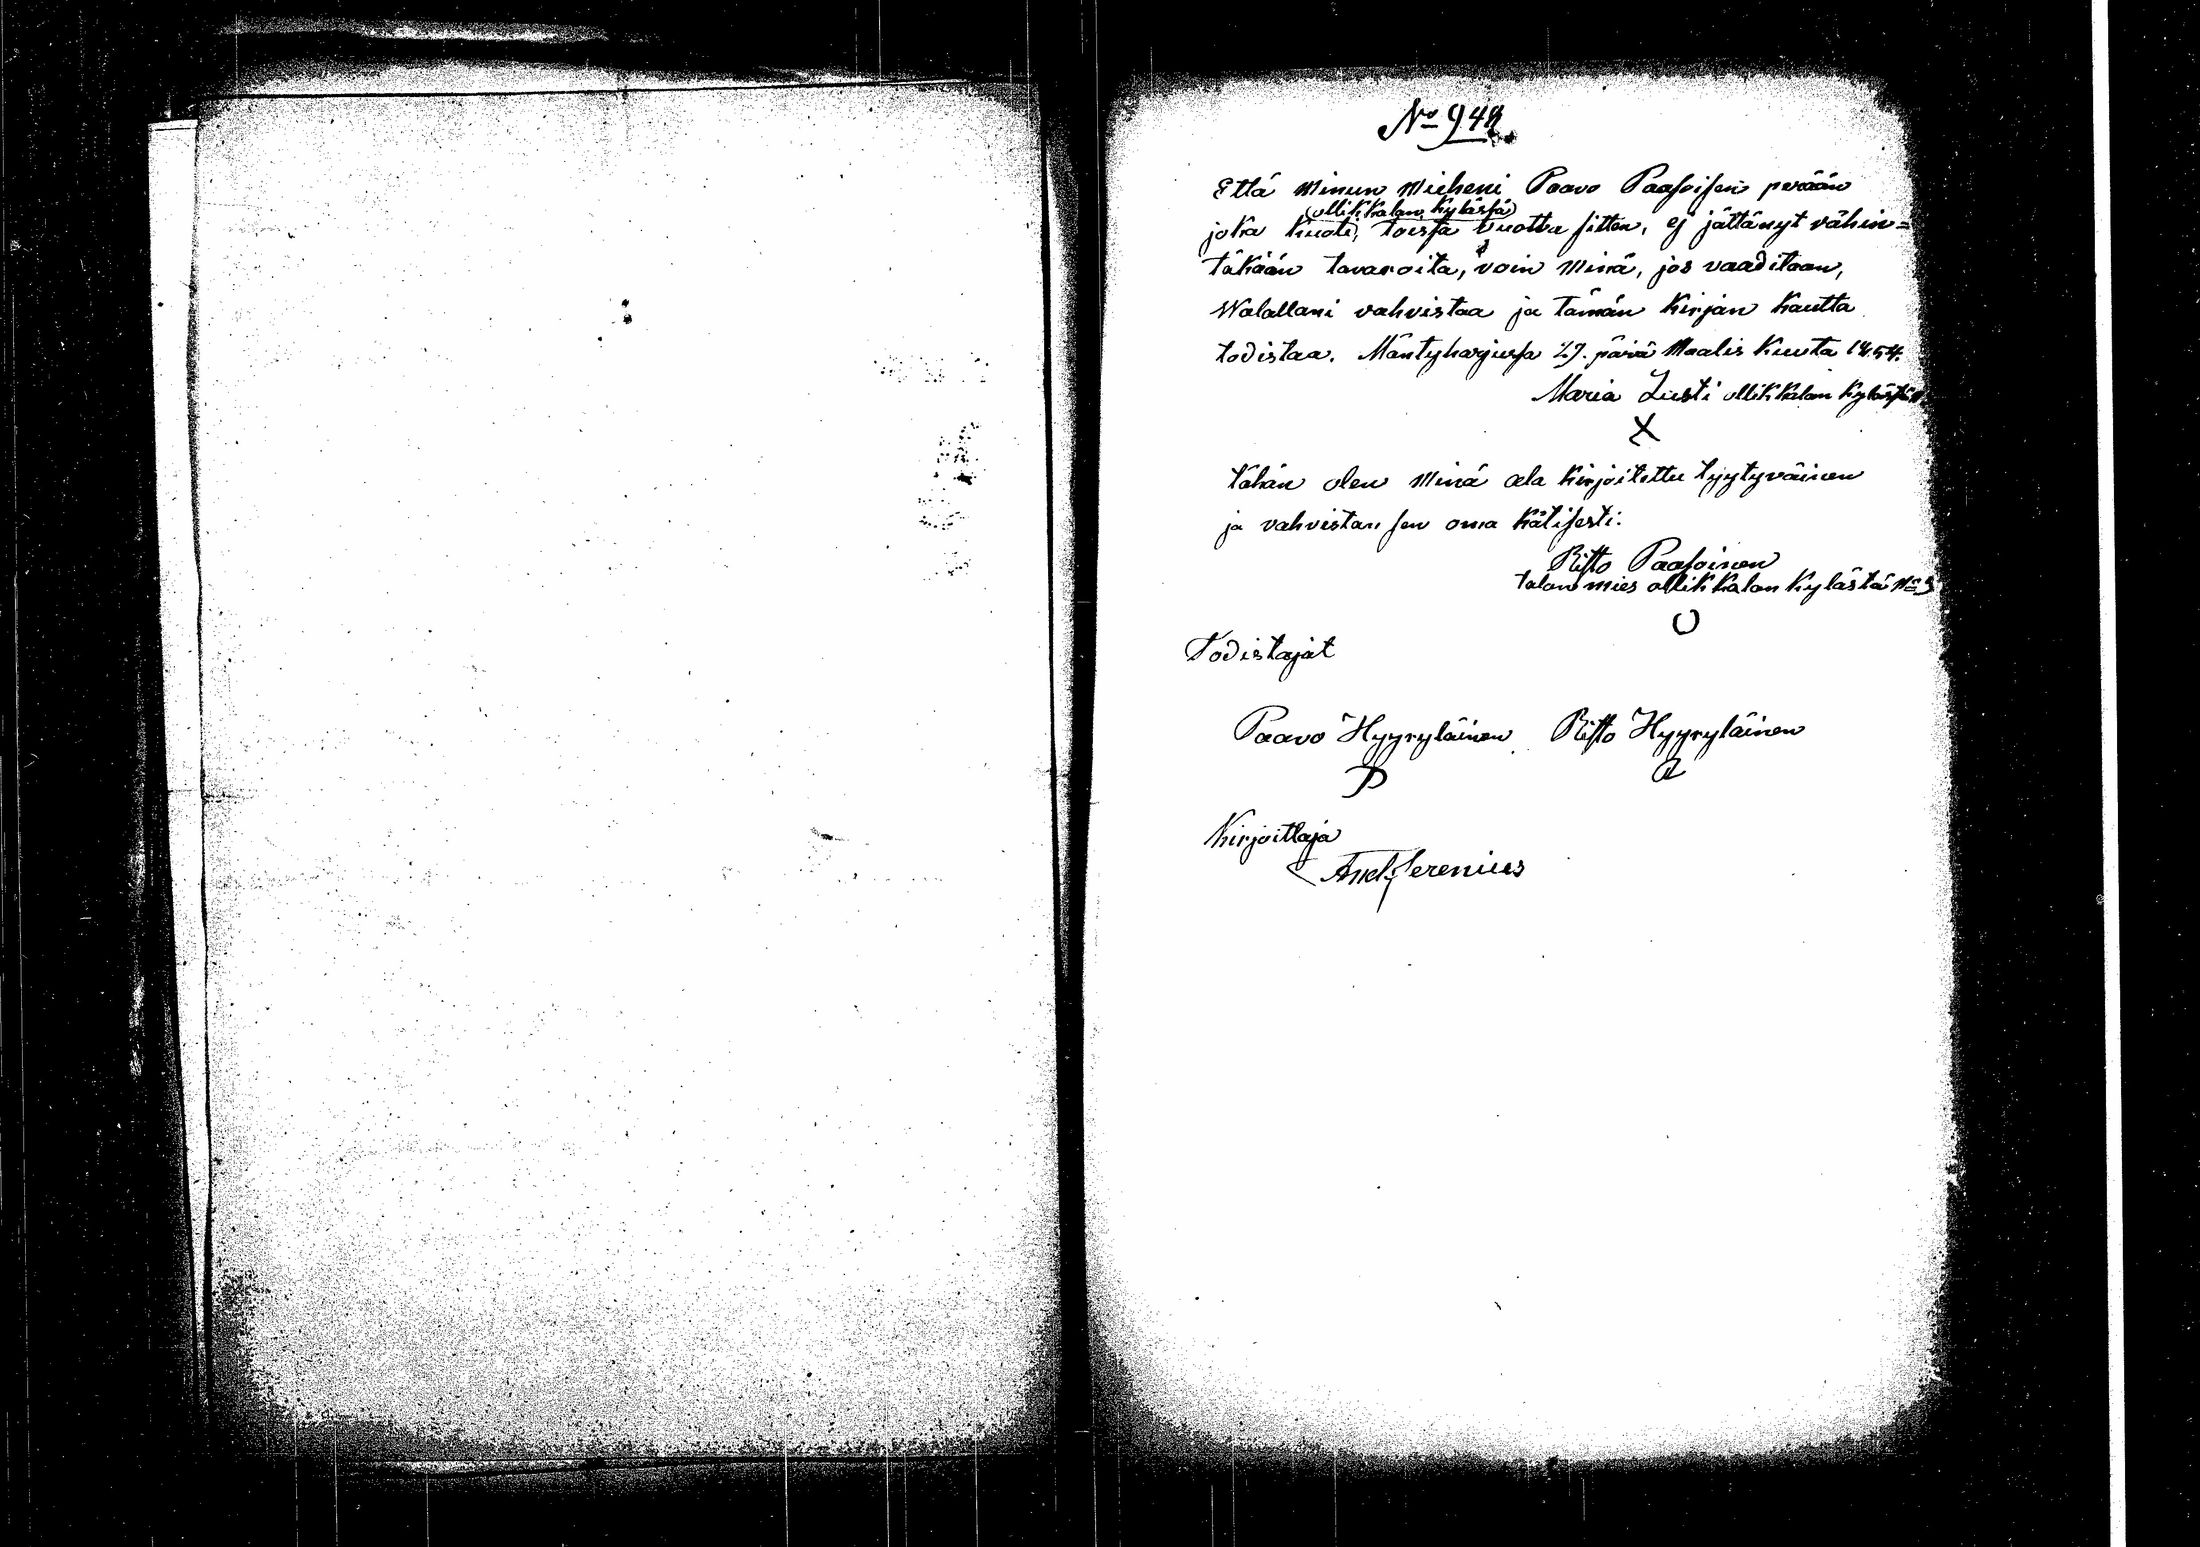 No 948
Että minun Mieheni Paavo Paasoisen perään
(ollikkalan kylässä)
joka kuoli, toista vuotta sitten, ej jättänyt vähin=
täkään tavaroita, voin minä, jos vaaditaan,
Walallani vahvistaa ja tämän kirjan kautta
todistaa. Mäntyharjussa 27. päivä Maalis kuuta 1854.
Maria Liisti ollikkalan kylästä
X
tähän olen minä ala kirjoitettu tyytyväinen
ja vahvistan sen oma kätisesti:
Risto Paasoinen
talon mies ollikkalan kylästä No 9
O
Todistajat
Paavo Hyyryläinen Risto Hyyryläinen
P R
Kirjoittaja
And. Serenius